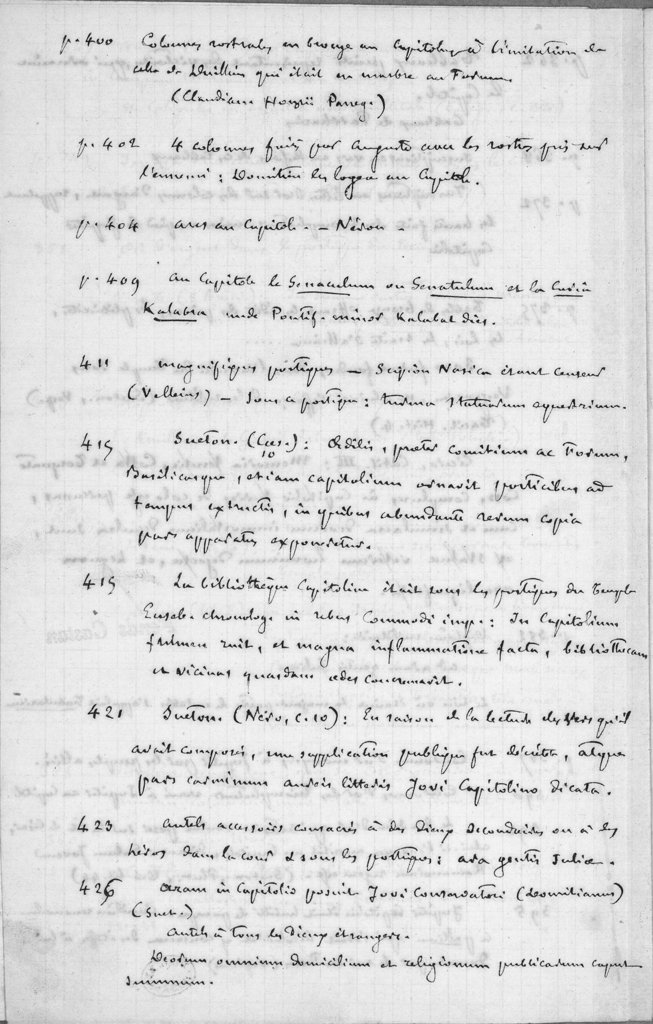 p. 400 Colonnes rostrales en bronze au Capitole, à l'imitation de
celle de Duillius qui était en marbre au Forum.
(Claudian. Honorii Paneg.)
p. 402 4 colonnes faites par Auguste avec les rostres pris sur
l'ennemi : Domitien les logea au Capitole.
p. 404 arcs au Capitole. – Néron.
p. 409 au Capitole le Senaculum ou Senatulum et la Curia
Kalabra unde Pontif. minor Kalabat dies.
411 magnifiques portiques – Scipion Nasica étant censeur
(Velleius) – sous ce portique : turma statuarum equestrium.
415 Sueton. (Cæs.) : Ædilis, præter comitium ac Forum,
10
Basilicasque, etiam capitolium ornavit porticibus ad
tempus extructis, in quibus abundante rerum copia
pars apparatus exponeretur.
415 La bibliothèque Capitoline était sous les portiques du temple
Euseb. chronolog. in rebus Commodi imp. : In Capitolium
fulmen ruit, et magna inflammatione facta, bibliothecam
et vicinas quasdam ædes concremavit.
421 Sueton. (Néro, c. 10) : En raison de la lecture des vers qu'il
avait composés, une supplication publique fut décrétée, atque
pars carminum aureis litteris Jovi Capitolino dicata.
423 Autels accessoires consacrés à des dieux secondaires ou à des
héros dans la cour et sous les portiques : ara gentis Juliæ.
426 aram in Capitolio posuit Jovi Conservatori (Domitianus)
(Suet.)
Autels à tous les dieux étrangers.
Deorum omnium domicilium et religionum publicarum caput
summum.